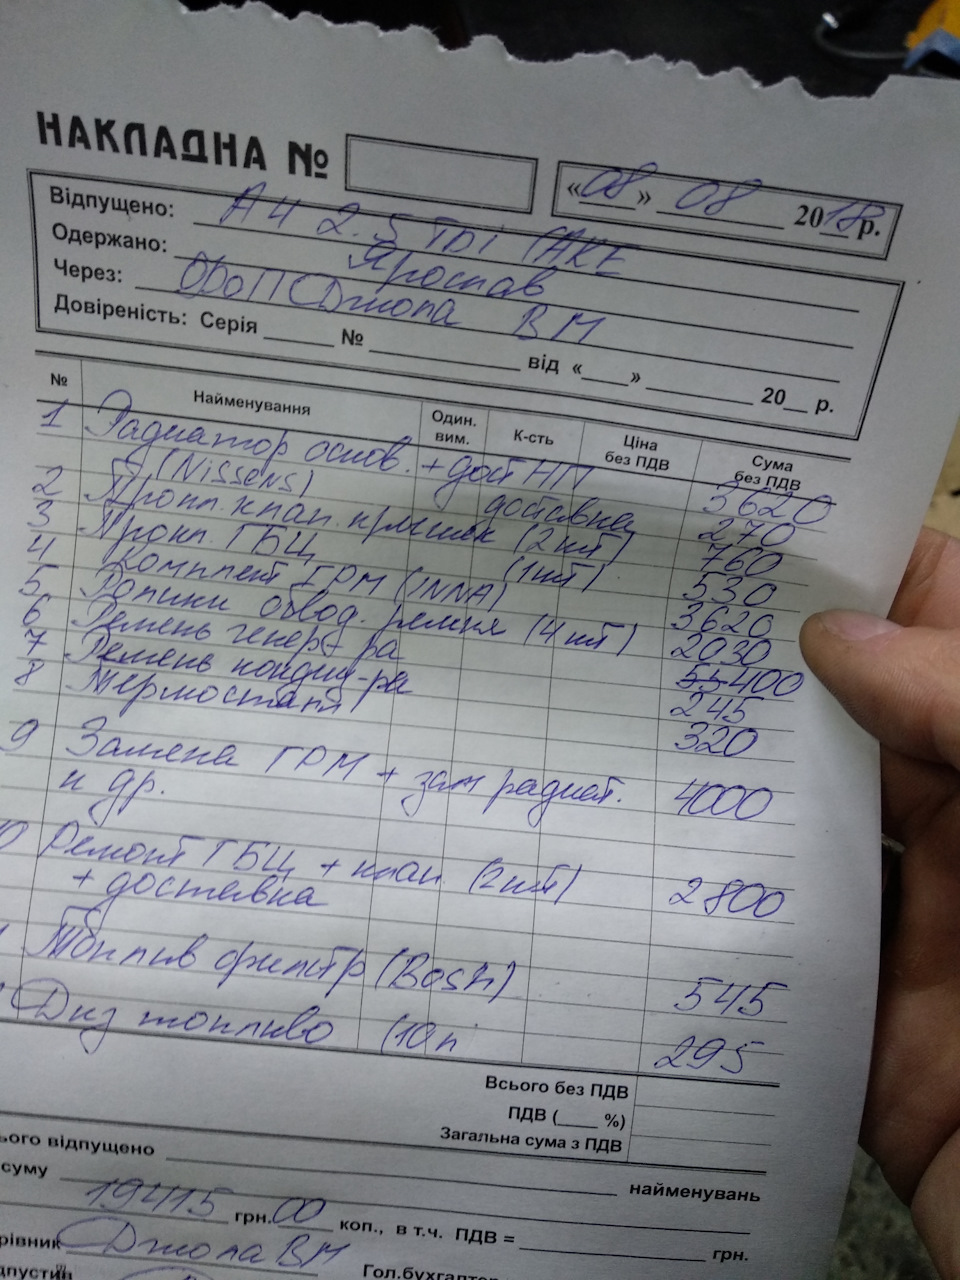 НАКЛАДНА №
«08» 08 2018 р.
Відпущено: А4 2.5 TDi (AKE
Одержано: Ярослав
Через: ФОП Джола ВМ
Довіреність: Серія № від « » 20 р.
№ Найменування Один. вим. К-сть Ціна без ПДВ Сума без ПДВ
1 Радиатор основ. + дост НП 3620
(Nissens) доставка 270
2 Прокл. клап. крышек (2 шт) 760
3 Прокл. ГБЦ (1 шт) 530
4 Комплект ГРМ (INNA) 3620
5 Ролики обвод. ремня (4 шт) 2030
6 Ремень генер-ра 400
7 Ремень кондиц-ра 245
8 Термостат 320
9 Замена ГРМ + зам радиат. 4000
и др.
Ремонт ГБЦ + клап (2 шт) 2800
+ доставка
Топлив фильтр (Bosh) 545
Диз топливо (10л 295
Всього без ПДВ
ПДВ ( %)
Загальна сума з ПДВ
ього відпущено найменувань
суму 19415 грн. 00 коп., в т.ч. ПДВ = грн.
рівник Джола ВМ Гол.бухгалтер
дпустив